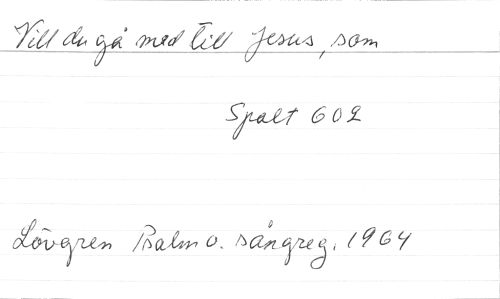 Vill du gå med till Jesus, som
Spalt 602
Lövgren Psalm o. sångreg. 1964